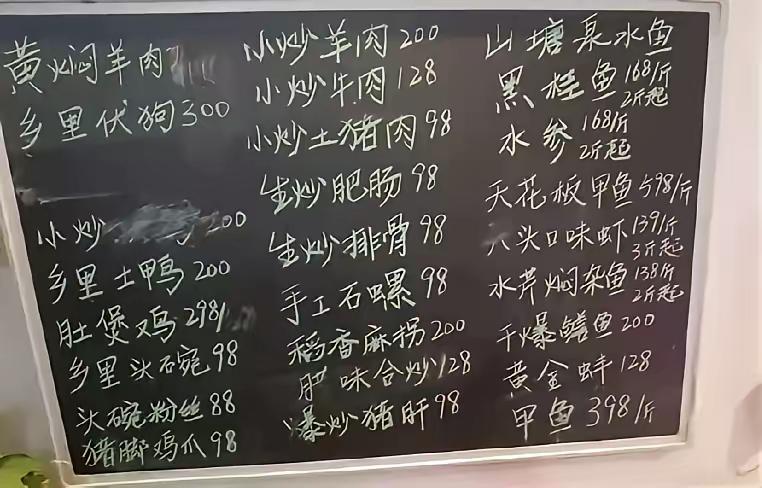 黄焖羊肉
乡里伏狗300
小炒 200
乡里土鸭200
肚煲鸡298/
乡里头碗98
头碗粉丝88
猪脚鸡爪98
小炒羊肉200
小炒牛肉128
小炒土猪肉98
生炒肥肠98
生炒排骨98
手工石螺98
稻香麻拐200
肥味合炒128
爆炒猪肝98
山塘泉水鱼
黑桂鱼168/斤
2斤起
水参168/斤
2斤起
天花板甲鱼598/斤
八头口味虾139/斤
3斤起
水芹焖杂鱼138/斤
2斤起
干爆鳝鱼200
黄金蚌128
甲鱼398/斤